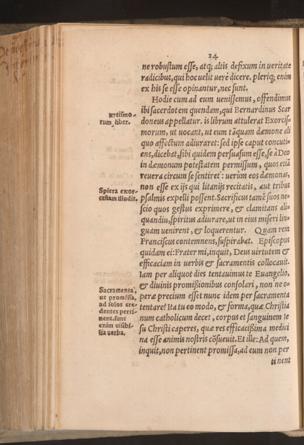 24
ne robustum esse, atq; altis defixum in ueritate
radicibus, qui hoc uelit uerè dicere. pleriq; enim
ex his se esse opinantur, nec sunt.
Hodie cum ad eum uenissemus, offendimus
ibi sacerdotem quendam, qui Bernardinus Scar
doneus appellatur. is librum attulerat Exorcis
morum, ut uocant, ut eum tāquam dæmone ali
quo affectum adiuraret: sed ipse caput concuti
ens, dicebat, sibi quidem persuasum esse, se à Deo
in dæmonum potestatem permissum, quos etiā
reuera circum se sentiret: uerùm eos dæmonas,
non esse ex ijs qui litanijs recitatis, aut tribus
psalmis expelli possent. Sacrificus tamē suos ne-
scio quos gestus exprimere, & clamitans ali-
quandiu, spiritus adiurare, ut in eius miseri lin-
guam uenirent, & loquerentur. Quam rem
Franciscus contemnens, suspirabat. Episcopus
quidam ei: Frater mi, inquit, Deus uirtutem &
efficaciam in uerbis & sacramentis collocauit.
Iam per aliquot dies tentauimus te Euangelio,
& diuinis promissionibus consolari, non ne o-
peræ precium esset nunc idem per sacramenta
tentare? Ita tu eo modo, & forma, quæ Christia
num catholicum decet, corpus et sanguinem Ie
su Christi caperes, qua res efficacißima medici
na esse animis nostris cōsueuit. Et ille: Ad quem,
inquit, non pertinent promissa, ad eum non per
ti nent
Spiera exor-
cistam illudit.
Sacramenta,
ut promissa,
ad solos cre-
dentes perti-
nent. sunt
enim uisibi-
lia uerba.